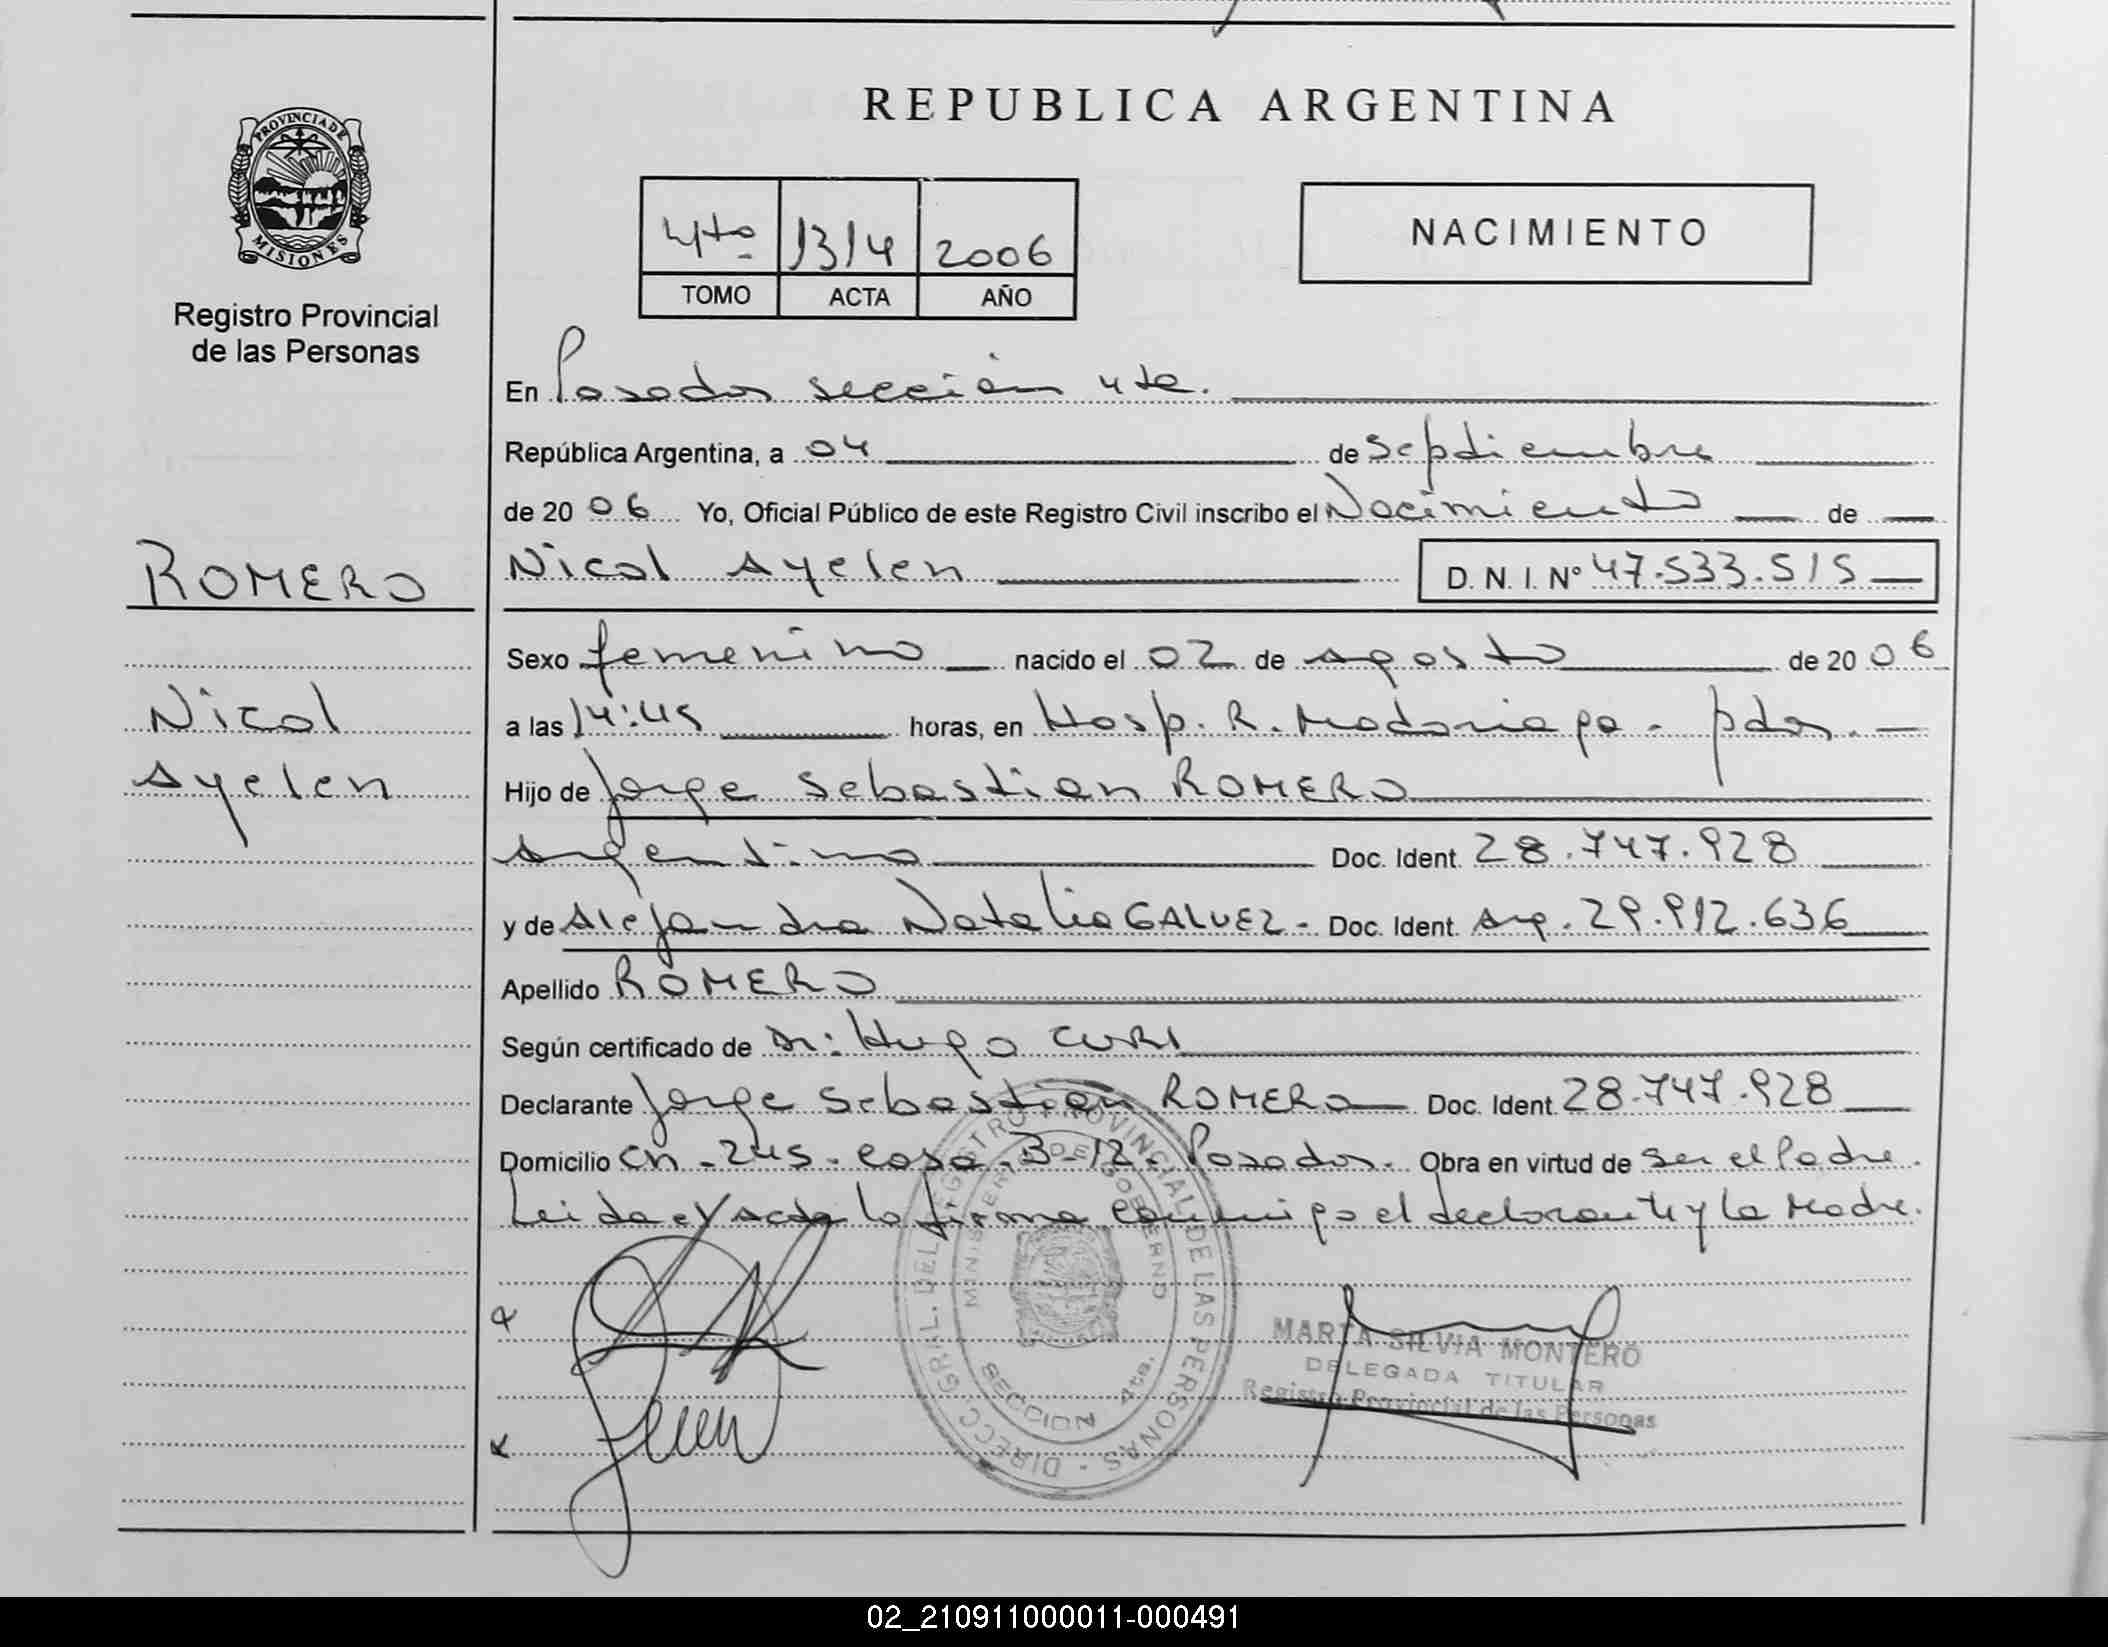 REPUBLICA ARGENTINA
PROVINCIA DE
MISIONES
Registro Provincial
de las Personas
4to 1314 2006
TOMO ACTA AÑO
NACIMIENTO
En Posadas sección 4ta.
República Argentina, a 04 de Septiembre
de 2006 Yo, Oficial Público de este Registro Civil inscribo el Nacimiento de
Nicol Ayelen D. N. I. N° 47.533.515
ROMERO
Nicol
Ayelen
Sexo femenino nacido el 02 de agosto de 2006
a las 14:45 horas, en Hosp. R. Madariaga - pdas.
Hijo de Jorge Sebastian ROMERO
Argentino Doc. Ident. 28.747.928
y de Alejandra Natalia GALVEZ - Doc. Ident. Arg. 29.912.636
Apellido ROMERO
Según certificado de Dr: Hugo CURI
Declarante Jorge Sebastian ROMERO Doc. Ident. 28.747.928
Domicilio CH - 245 - Casa - B-12 - Posadas. Obra en virtud de ser el Padre.
Leida el Acta la firma conmigo el declarante y la Madre.
DIRECC. GRAL. DEL REGISTRO PROVINCIAL DE LAS PERSONAS -
MINISTERIO DE GOBIERNO
SECCION 4ta.
MARTA SILVIA MONTERO
DELEGADA TITULAR
Registro Provincial de las Personas
02_210911000011-000491